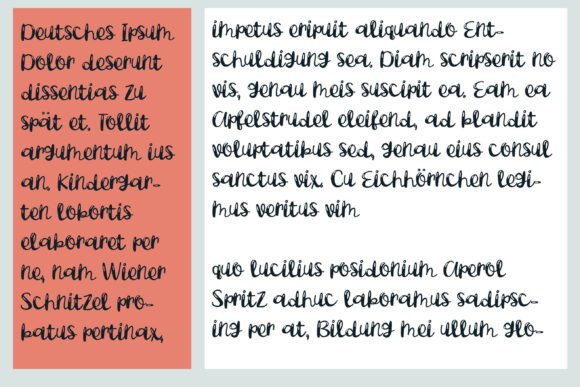 Deutsches Ipsum
Dolor deserunt
dissentias zu
spät et. Tollit
argumentum ius
an. Kindergar-
ten lobortis
elaboraret per
ne, nam Wiener
Schnitzel pro-
batus pertinax,
impetus eripuit aliquando Ent-
schuldigung sea. Diam scripserit no
vis, genau meis suscipit ea. Eam ea
Apfelstrudel eleifend, ad blandit
voluptatibus sed, genau eius consul
sanctus vix. Cu Eichhörnchen legi-
mus veritus vim
quo lucilius posidonium Aperol
Spritz adhuc laboramus sadipsc-
ing per at, Bildung mei ullum glo-